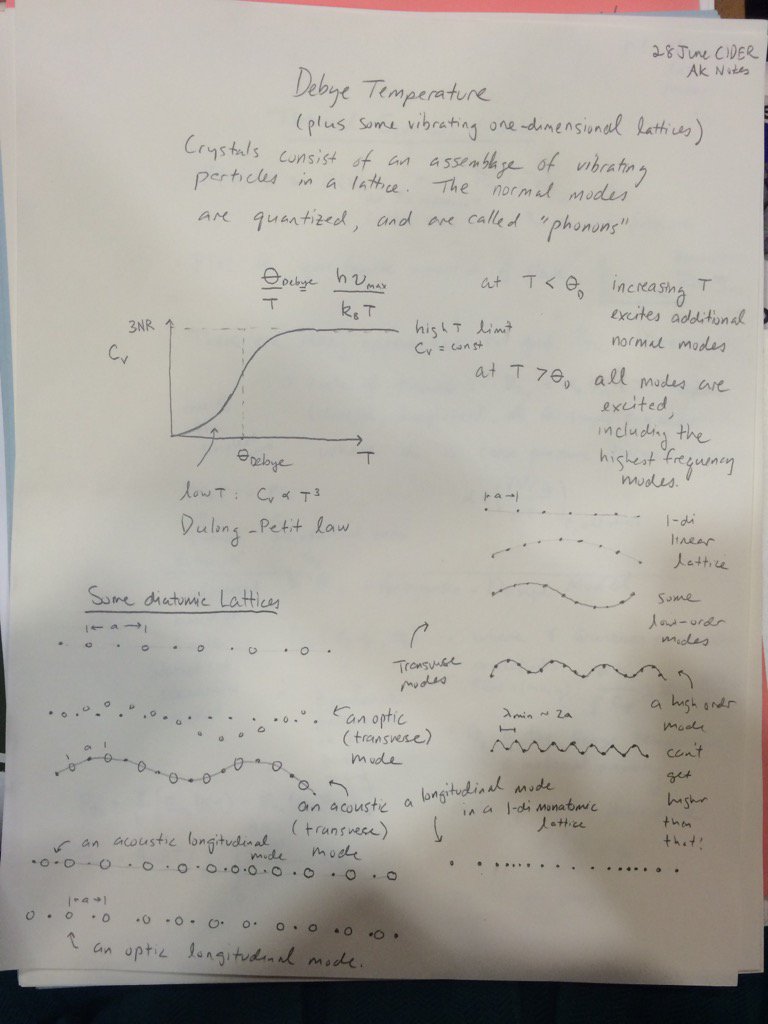 28 June CIDER
AK Notes
Debye Temperature
(plus some vibrating one-dimensional lattices)
Crystals consist of an assemblage of vibrating
particles in a lattice. The normal modes
are quantized, and are called "phonons"
θ_Debye / T   hν_max / k_B T
3NR
C_v
high T limit
C_v = const
θ_Debye
T
low T: C_v ∝ T³
Dulong-Petit law
at T < θ_D increasing T
excites additional
normal modes
at T > θ_D all modes are
excited,
including the
highest frequency
modes.
|-a→|
1-di
linear
lattice
some
low-order
modes
Transverse
modes
a high order
mode
λmin ~ 2a
can't
get
higher
than
that!
Some diatomic Lattices
|← a →|
an optic
(transverse)
mode
a
an acoustic
(transvese)
mode
a longitudinal mode
in a 1-di monatomic
lattice
an acoustic longitudinal
mode
|-a→|
an optic longitudinal mode.